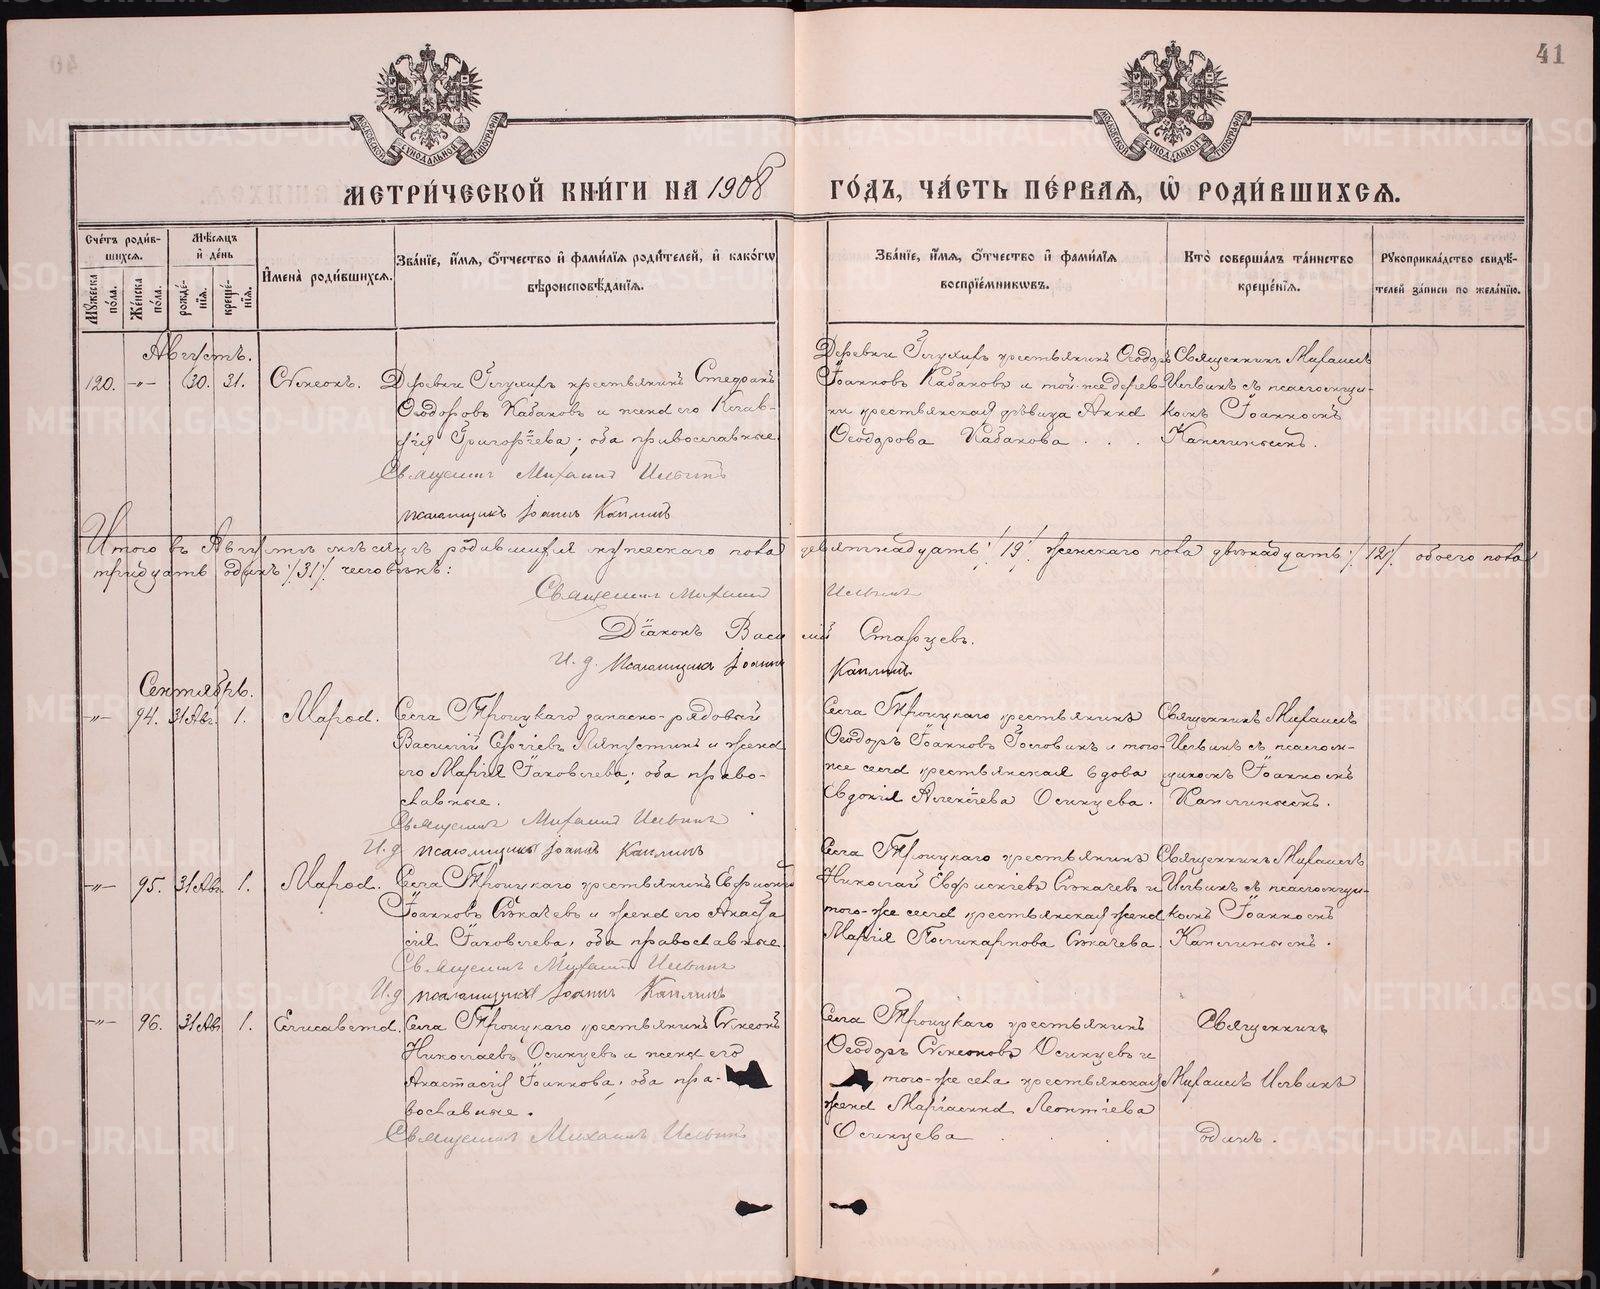 41
МОСКОВСКОЙ СУНОДАЛЬНОЙ ТИПОГРАФІИ
МОСКОВСКОЙ СУНОДАЛЬНОЙ ТИПОГРАФІИ
МЕТРИ́ЧЕСКОЙ КНИ́ГИ НА 1908 ГО́ДЪ, ЧА́СТЬ ПЕ́РВАЯ, Ѡ РОДИ́ВШИХСЯ.
Сче́тъ роди́в-
шихся.
Мѣ́сяцъ
и҆ де́нь
Му́жеска
по́ла.
Же́нска
по́ла.
рожде́-
нїя.
креще́-
нїя.
И҆мена̀ роди́вшихся.
Зва́нїе, и҆́мя, ѻ҆́тчество и҆ фами́лїя роди́телей, и҆ како́гѡ
вѣроисповѣ́данїя.
Зва́нїе, и҆́мя, ѻ҆́тчество и҆ фами́лїя
воспрїе́мникѡвъ.
Кто̀ соверша́лъ та́инство
креще́нїя.
Рукоприкла́дство свидѣ́-
телей за́писи по жела́нїю.
Августъ.
120. -„- 30. 31. Сѵмеонъ.
Деревни Глухихъ крестьянинъ Стефанъ
Ѳеодоровъ Кабаковъ и жена его Клав-
дія Григорьева; оба православные.
Священникъ Михаилъ Ильинъ
псаломщикъ Іоаннъ Каплинъ
Деревни Глухихъ крестьянинъ Ѳеодоръ
Іоанновъ Кабаковъ и той-же дерев-
ни крестьянская дѣвица Анна
Ѳеодорова Кабакова . . .
Священникъ Михаилъ
Ильинъ съ псаломщи-
комъ Іоанномъ
Каплинымъ.
Итого въ Августѣ мѣсяцѣ родившихся мужескаго пола девятнадцать /19/ женскаго пола двѣнадцать /12/ обоего пола
тридцать одинъ /31/ человѣкъ:
Священникъ Михаилъ Ильинъ
Діаконъ Василій Старцевъ.
И. д. псаломщика Іоаннъ Каплинъ.
Сентябрь.
-„- 94. 31 Авг. 1. Марѳа.
Села Троицкаго запасно-рядовый
Василій Сергіевъ Ляпустинъ и жена
его Марія Іаковлева; оба право-
славные.
Священникъ Михаилъ Ильинъ
И. д. псаломщика Іоаннъ Каплинъ
Села Троицкаго крестьянинъ
Ѳеодоръ Іоанновъ и того-
же села крестьянская вдова
Евдокія Алексіева Осинцева.
Священникъ Михаилъ
Ильинъ съ псалом-
щикомъ Іоанномъ
Каплинымъ.
-„- 95. 31 Авг. 1. Марѳа.
Села Троицкаго крестьянинъ
Іоанновъ Сѣкачевъ и жена его Анаста
сія Іаковлева, оба православные.
Священникъ Михаилъ Ильинъ
И. д. псаломщика Іоаннъ Каплинъ
Села Троицкаго крестьянинъ
Николай Сѣкачевъ и
того-же села крестьянская жена
Марія Поликарпова Сѣкачева.
Священникъ Михаилъ
Ильинъ съ псаломщи-
комъ Іоанномъ
Каплинымъ.
-„- 96. 31 Авг. 1. Елисавета.
Села Троицкаго крестьянинъ Сѵмеонъ
Николаевъ Осинцевъ и жена его
Анастасія Іоаннова, оба пра-
вославные.
Священникъ Михаилъ Ильинъ
Села Троицкаго крестьянинъ
Ѳеодоръ Сѵмеоновъ Осинцевъ и
того-же села крестьянская
жена Маріанна Леонтіева
Осинцева . . .
Священникъ
Михаилъ Ильинъ
одинъ.
METRIKI.GASO-URAL.RU